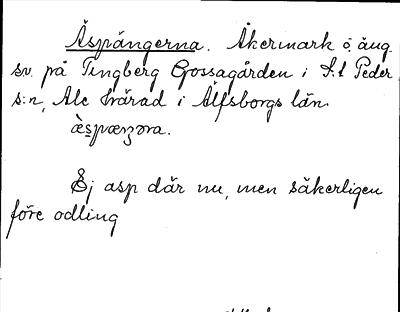 Äspängerna. Åkermark o. äng
sv. på Tingberg Gossagården i S:t Peder
s:n, Ale härad i Älfsborgs län.
æspæŋəṛa.
Ej asp där nu, men säkerligen
före odling